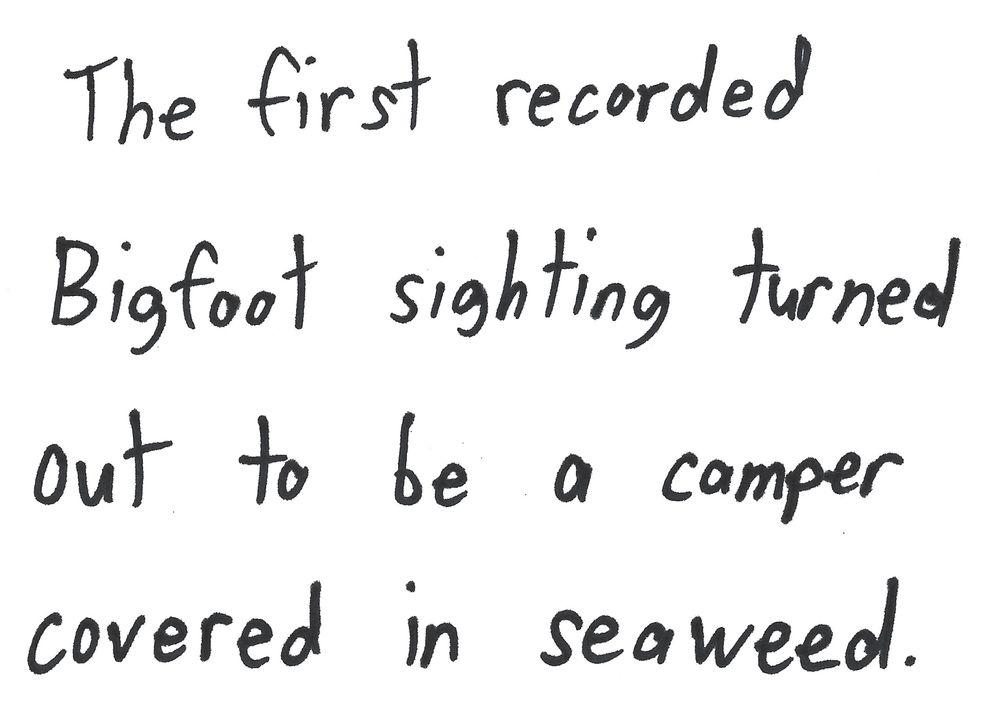 The first recorded
Bigfoot sighting turned
out to be a camper
covered in seaweed.